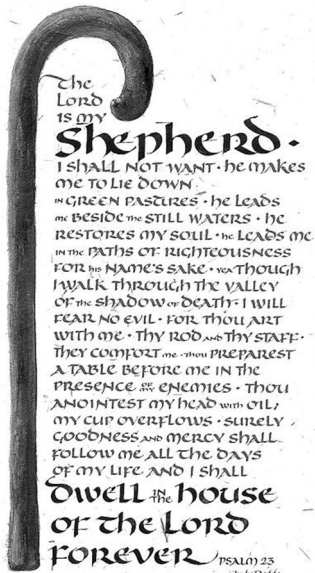 The
Lord
is my
Shepherd ·
I shall not want · he makes
me to lie down
in green pastures · he leads
me beside the still waters · he
restores my soul · he leads me
in the paths of righteousness
for his name's sake · yea though
I walk through the valley
of the shadow of death · I will
fear no evil · for thou art
with me · thy rod and thy staff ·
they comfort me · thou preparest
a table before me in the
presence of my enemies · thou
anointest my head with oil,
my cup overflows · surely
goodness and mercy shall
follow me all the days
of my life and I shall
dwell in the house
of the Lord
forever
Psalm 23